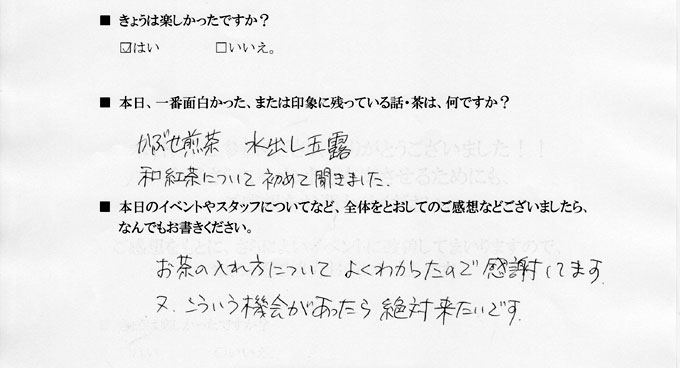 ■ きょうは楽しかったですか？
☑はい　□いいえ。
■ 本日、一番面白かった、または印象に残っている話・茶は、何ですか？
かぶせ煎茶　水出し玉露
和紅茶について初めて聞きました.
■ 本日のイベントやスタッフについてなど、全体をとおしてのご感想などございましたら、
なんでもお書きください。
お茶の入れ方について よくわかったので 感謝してます.
又、こういう機会があったら 絶対来たいです.